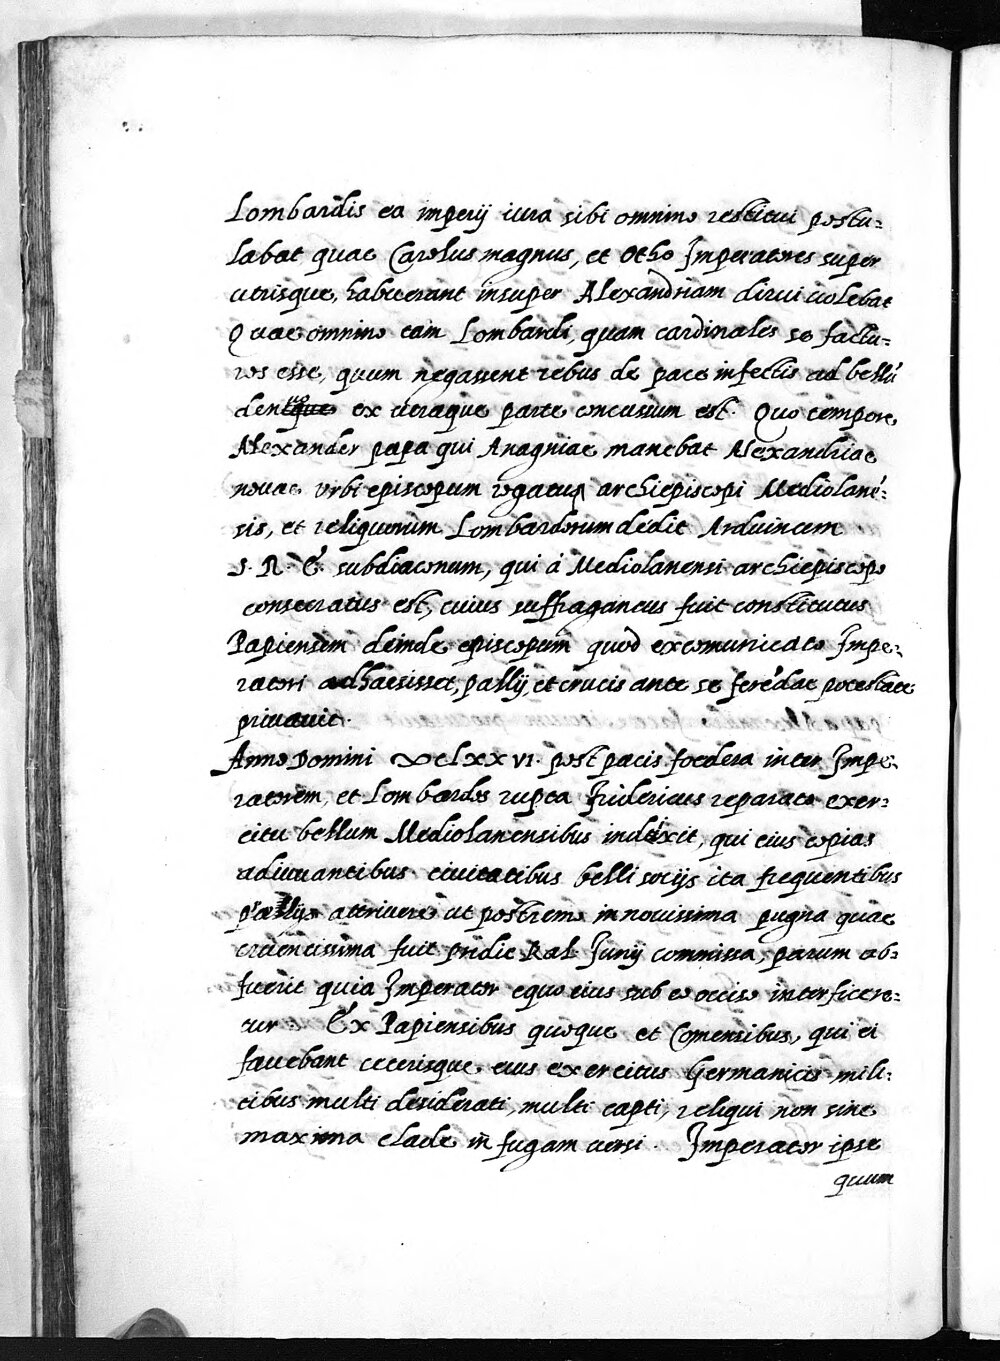 Lombardis ea imperij iura sibi omnino restitui postu=
labat quae Carolus magnus, et Otho Imperatores super
utrisque, habuerant insuper Alexandriam dirui uolebat
Quae omnino tam Lombardi, quam cardinales se factu=
ros esse, quum negassent rebus de pace infectis ad bellũ
denuo ex utraque parte concussum est. Quo tempore,
Alexander papa qui Anagniae manebat Alexandriae
nouae Vrbi episcopum rogatus archiepiscopi Mediolanẽ=
sis, et reliquorum Lombardorum dedit Arduinum
S. R. E. subdiaconum, qui à Mediolanensi archiepiscopo
consecratus est, cuius suffraganeus fuit constitutus
Papiensem deinde episcopum quod excomunicato Impe=
ratori adhaesisset, pallij, et crucis ante se ferẽdae potestate
priuauit.
Anno Domini ∞clxxvi. post pacis foedera inter Impe=
ratorem, et Lombardos rupta Fridericus reparato exer=
citu bellum Mediolanensibus indixit, qui eius copias
adiuuantibus ciuitatibus belli socijs ita frequentibus
praelijs attriuere ut postremo in nouissima pugna quae
cruentissima fuit pridie Kal. Junij commissa, parum ab=
fuerit quia Imperator equo eius sub eo occiso interficere=
tur. Ex Papiensibus quoque et Comensibus, qui ei
fauebant ceterisque eius exercitus Germanicis mili=
cibus multi desiderati, multi capti, reliqui non sine
maxima clade in fugam uersi. Imperator ipse
quum